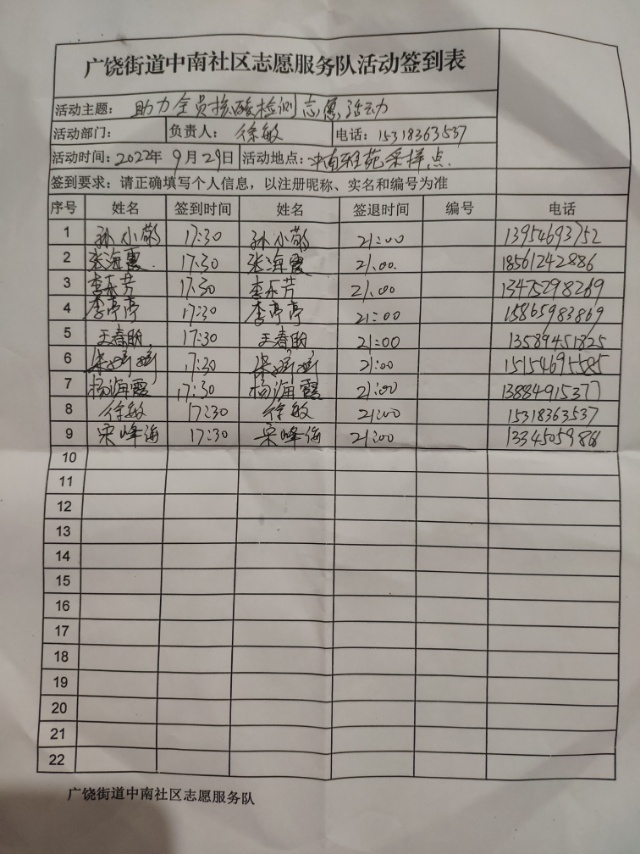 广饶街道中南社区志愿服务队活动签到表
活动主题: 助力全员核酸检测志愿活动
活动部门: 负责人: 徐敏 电话: 15318363537
活动时间: 2022年9月29日 活动地点: 中南雅苑采样点
签到要求: 请正确填写个人信息, 以注册昵称、实名和编号为准
序号 姓名 签到时间 姓名 签退时间 编号 电话
1 孙小敬 17:30 孙小敬 21:00 13954693752
2 张海霞 17:30 张海霞 21:00 18561242886
3 李乐芳 17:30 李乐芳 21:00 13475298269
4 李亭亭 17:30 李亭亭 21:00 15865983869
5 王春 17:30 王春 21:00 13589451825
6 17:30 21:00 15154691585
7 杨海霞 17:30 杨海霞 21:00 1388491537
8 徐敏 17:30 徐敏 21:00 15318363537
9 宋峰海 17:30 宋峰海 21:00
10
11
12
13
14
15
16
17
18
19
20
21
22
广饶街道中南社区志愿服务队